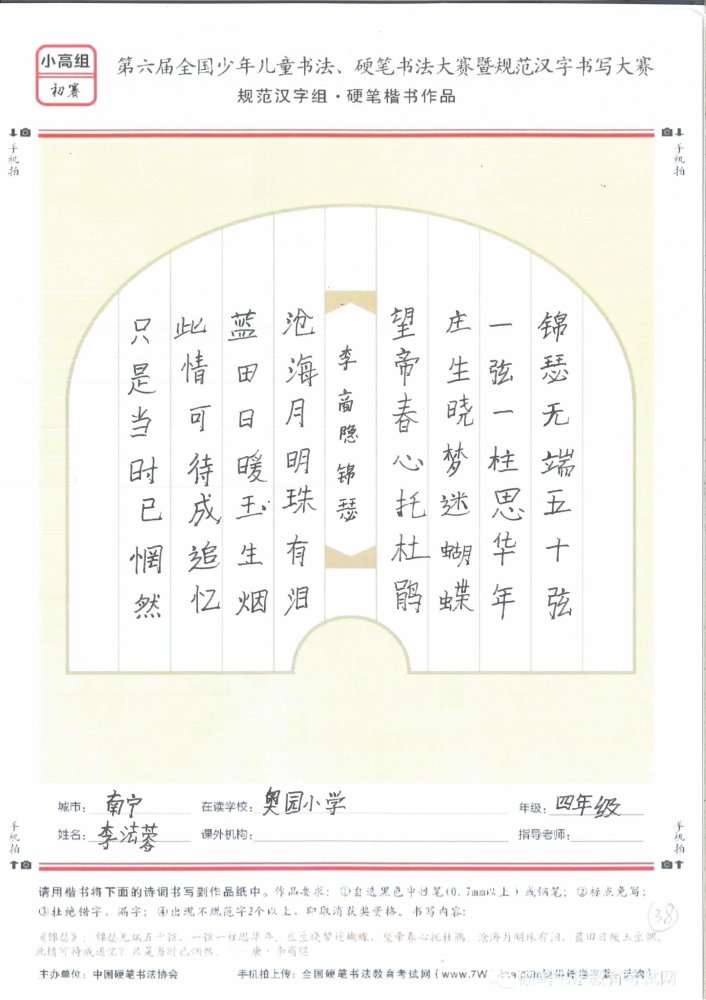 小高组
初赛
第六届全国少年儿童书法、硬笔书法大赛暨规范汉字书写大赛
规范汉字组·硬笔楷书作品
手机拍
手机拍
锦瑟无端五十弦
一弦一柱思华年
庄生晓梦迷蝴蝶
望帝春心托杜鹃
李商隐锦瑟
沧海月明珠有泪
蓝田日暖玉生烟
此情可待成追忆
只是当时已惘然
城市：南宁 在读学校：奥园小学 年级：四年级
姓名：李洁蓉 课外机构： 指导老师：
手机拍
手机拍
请用楷书将下面的诗词书写到作品纸中。作品要求：①自选黑色中性笔（0.7mm以上）或钢笔；②标点免写；
③杜绝错字、漏字；④出现不规范字2个以上，即取消获奖资格。书写内容：
38
《锦瑟》：锦瑟无端五十弦，一弦一柱思华年。庄生晓梦迷蝴蝶，望帝春心托杜鹃。沧海月明珠有泪，蓝田日暖玉生烟。
此情可待成追忆？只是当时已惘然。——唐·李商隐
主办单位：中国硬笔书法协会 手机拍上传：全国硬笔书法教育考试网（www.7W
硬笔书法教育考试网